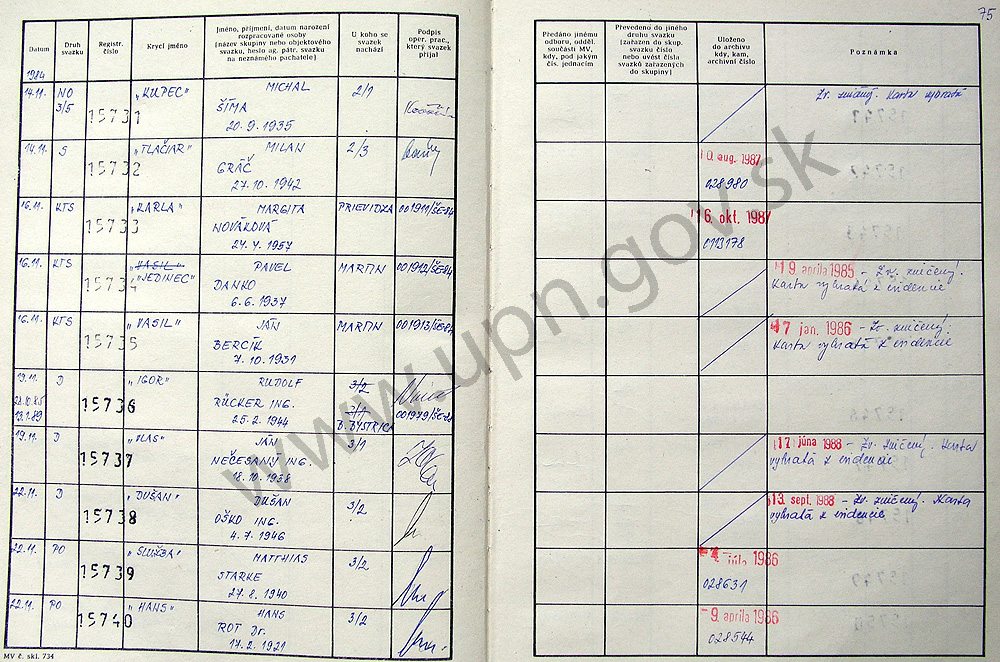 75
Datum
Druh svazku
Registr. číslo
Krycí jméno
Jméno, příjmení, datum narození
rozpracované osoby
(název skupiny nebo objektového
svazku, heslo ag. pátr. svazku
na neznámého pachatele)
U koho se
svazek
nachází
Podpis
oper. prac.,
který svazek
přijal
Předáno jinému
odboru, odděl.
součásti MV,
kdy, pod jakým
čís. jednacím
Převedeno do jiného
druhu svazku
(zařazen do skup.
svazku číslo
nebo uvést čísla
svazků zařazených
do skupiny)
Uloženo
do archivu
kdy, kam,
archivní číslo
Poznámka
1984
14.11. NO 3/5 15731 „KUPEC" MICHAL 2/1
ŠÍMA
20. 9. 1935
Zv. zničený. Karta vybratá
14.11. S 15732 „TLAČIAR" MILAN 2/3
GRÁČ
27. 10. 1942
aug. 1987
028980
16.11. KTS 15733 „KARLA" MARGITA PRIEVIDZA 001911/ŠE-84
NOVÁKOVÁ
24. 4. 1957
16. okt. 1987
16.11. KTS 15734 „VASIL" PAVEL MARTIN 001912/ŠE-84
„JEDINEC" DANKO
6. 6. 1937
19. apríla 1985 - Zv. zničený.
Karta vybratá z evidencie
16.11. KTS 15735 „VASIL" JÁN MARTIN 001913/ŠE-84
BERCÍK
7. 10. 1931
17 jan. 1986 - Zv. zničený.
Karta vybratá z evidencie
19.11. D 15736 „IGOR" RUDOLF 3/2
RÜCKER ING.
25. 2. 1944
13.1.89
B. BYSTRICA
19.11. D 15737 „VLAS" JÁN 3/1
NEČESANÝ ING.
18. 10. 1938
17. júna 1988 - Zv. zničený. Karta
vybratá z evidencie
22.11. D 15738 „DUŠAN" DUŠAN 3/2
OŠKO ING.
4. 7. 1946
13. sept. 1988 - Zv. zničený. Karta
vybratá z evidencie
22.11. PO 15739 „SLUŽBA" MATTHIAS 3/2
STARKE
27. 8. 1940
1986
028631
22.11. PO 15740 „HANS" HANS 3/2
ROT Dr.
17. 2. 1921
9. apríla 1986
028544
MV č. skl. 734
www.upn.gov.sk